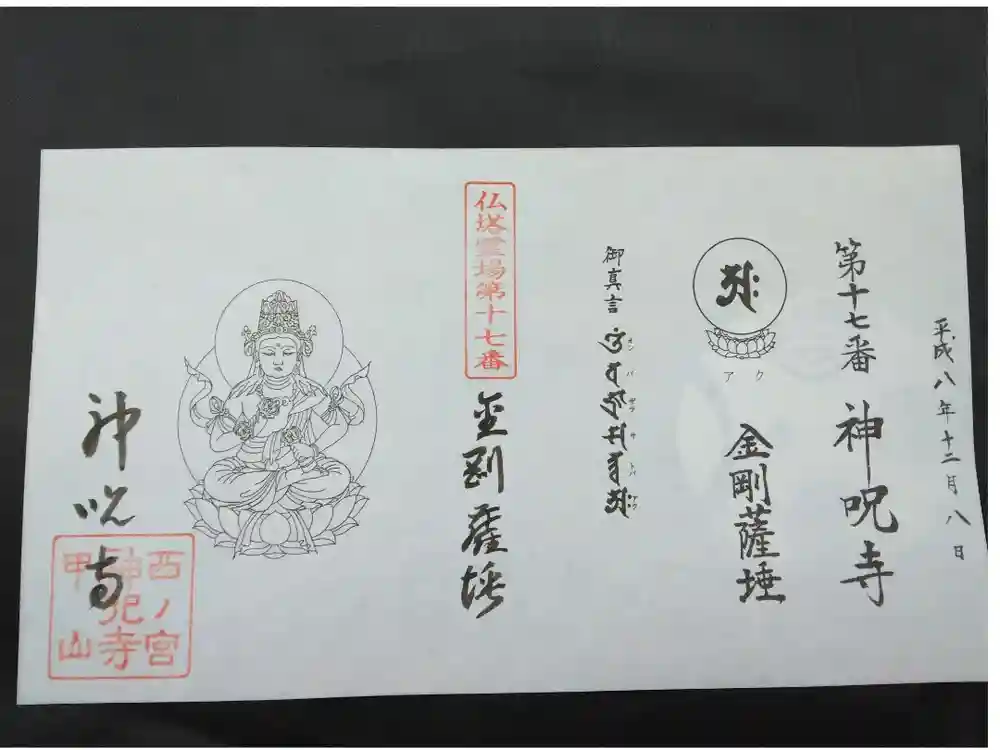 平成八年十二月八日
第十七番 神呪寺
アク
金剛薩埵
御真言
オン バ ザラ サ トバ アク
仏塔霊場第十七番
金剛薩埵
神呪寺
西ノ宮
神呪寺
甲山